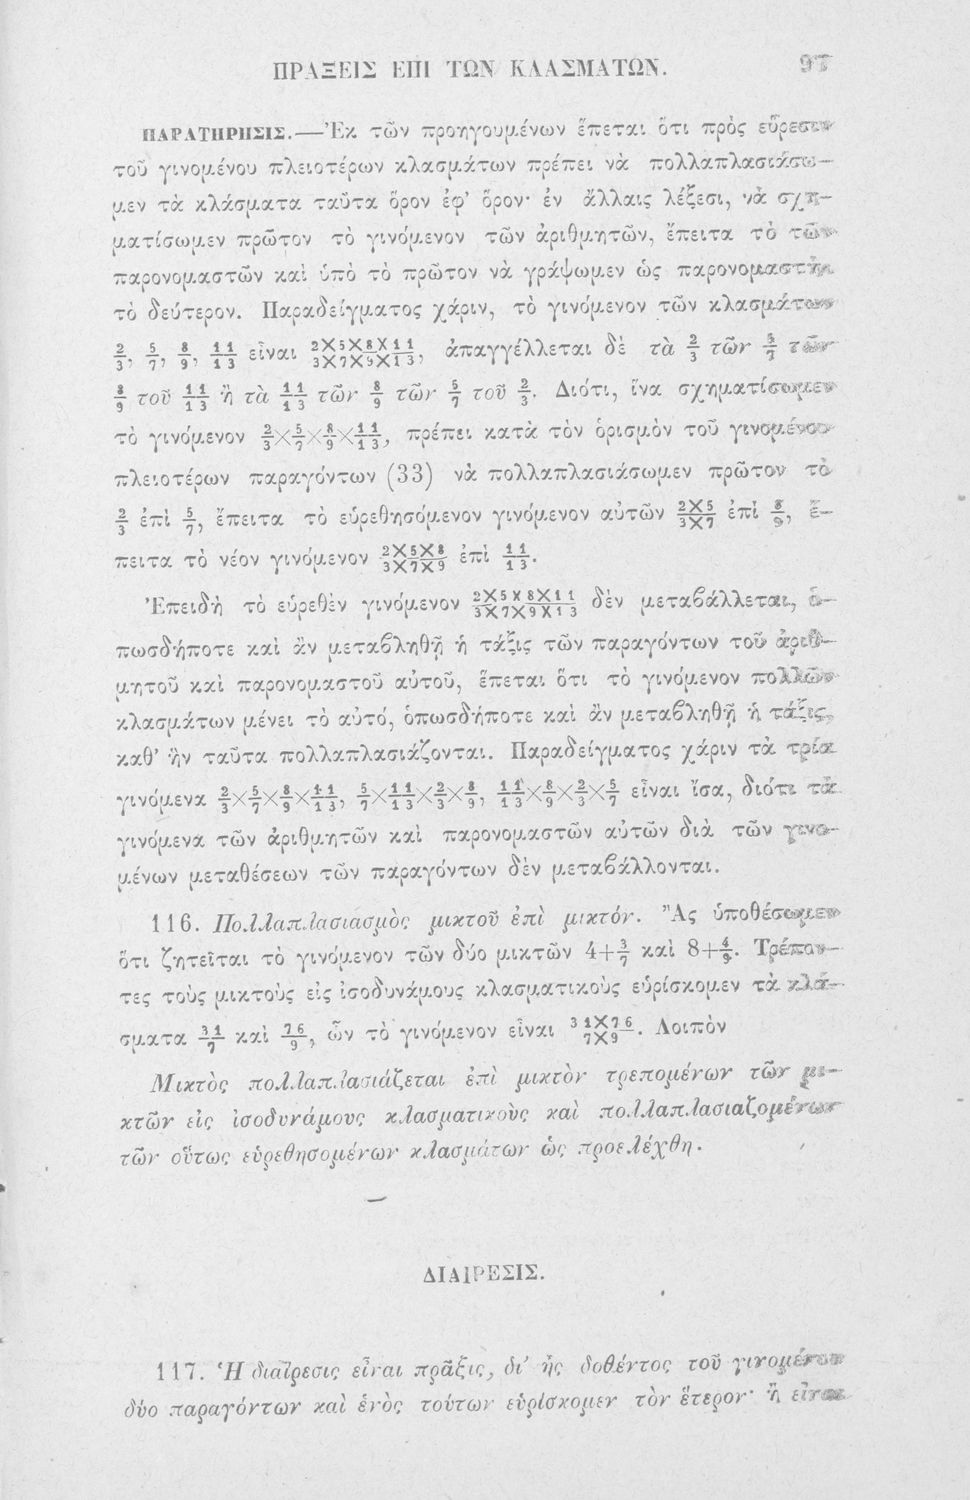 ΠΡΑΞΕΙΣ ΕΠΙ ΤΩΝ ΚΛΑΣΜΑΤΩΝ. 97
ΠΑΡΑΤΗΡΗΣΙΣ.—Ἐκ τῶν προηγουμένων ἕπεται ὅτι πρὸς εὕρεσιν
τοῦ γινομένου πλειοτέρων κλασμάτων πρέπει νὰ πολλαπλασιάσω-
μεν τὰ κλάσματα ταῦτα ὅρον ἐφ' ὅρον· ἐν ἄλλαις λέξεσι, νὰ σχη-
ματίσωμεν πρῶτον τὸ γινόμενον τῶν ἀριθμητῶν, ἔπειτα τὸ τῶν
παρονομαστῶν καὶ ὑπὸ τὸ πρῶτον νὰ γράψωμεν ὡς παρονομαστὴν
τὸ δεύτερον. Παραδείγματος χάριν, τὸ γινόμενον τῶν κλασμάτων
2/3, 5/7, 8/9, 11/13 εἶναι 2×5×8×11/3×7×9×13, ἀπαγγέλλεται δὲ τὰ 2/3 τῶν 5/7 τῶν
8/9 τοῦ 11/13 ἢ τὰ 11/13 τῶν 8/9 τῶν 5/7 τοῦ 2/3. Διότι, ἵνα σχηματίσωμεν
τὸ γινόμενον 2/3×5/7×8/9×11/13, πρέπει κατὰ τὸν ὁρισμὸν τοῦ γινομένου
πλειοτέρων παραγόντων (33) νὰ πολλαπλασιάσωμεν πρῶτον τὸ
2/3 ἐπὶ 5/7, ἔπειτα τὸ εὑρεθησόμενον γινόμενον αὐτῶν 2×5/3×7 ἐπὶ 8/9, ἔ-
πειτα τὸ νέον γινόμενον 2×5×8/3×7×9 ἐπὶ 11/13.
Ἐπειδὴ τὸ εὑρεθὲν γινόμενον 2×5×8×11/3×7×9×13 δὲν μεταβάλλεται, ὁ-
πωσδήποτε καὶ ἂν μεταβληθῇ ἡ τάξις τῶν παραγόντων τοῦ ἀριθ-
μητοῦ καὶ παρονομαστοῦ αὐτοῦ, ἕπεται ὅτι τὸ γινόμενον πολλῶν
κλασμάτων μένει τὸ αὐτό, ὁπωσδήποτε καὶ ἂν μεταβληθῇ ἡ τάξις,
καθ' ἣν ταῦτα πολλαπλασιάζονται. Παραδείγματος χάριν τὰ τρία
γινόμενα 2/3×5/7×8/9×11/13, 5/7×11/13×2/3×8/9, 11/13×8/9×2/3×5/7 εἶναι ἴσα, διότι τὰ
γινόμενα τῶν ἀριθμητῶν καὶ παρονομαστῶν αὐτῶν διὰ τῶν γενο-
μένων μεταθέσεων τῶν παραγόντων δὲν μεταβάλλονται.
116. Πολλαπλασιασμὸς μικτοῦ ἐπὶ μικτόν. Ἂς ὑποθέσωμεν
ὅτι ζητεῖται τὸ γινόμενον τῶν δύο μικτῶν 4+3/7 καὶ 8+4/9. Τρέπον-
τες τοὺς μικτοὺς εἰς ἰσοδυνάμους κλασματικοὺς εὑρίσκομεν τὰ κλά-
σματα 31/7 καὶ 76/9, ὧν τὸ γινόμενον εἶναι 31×76/7×9. Λοιπὸν
Μικτὸς πολλαπλασιάζεται ἐπὶ μικτὸν τρεπομένων τῶν μι-
κτῶν εἰς ἰσοδυνάμους κλασματικοὺς καὶ πολλαπλασιαζομένων
τῶν οὕτως εὑρεθησομένων κλασμάτων ὡς προελέχθη.
ΔΙΑΙΡΕΣΙΣ.
117. Ἡ διαίρεσις εἶναι πρᾶξις, δι' ἧς δοθέντος τοῦ γινομένου
δύο παραγόντων καὶ ἑνὸς τούτων εὑρίσκομεν τὸν ἕτερον· ἢ εἶναι